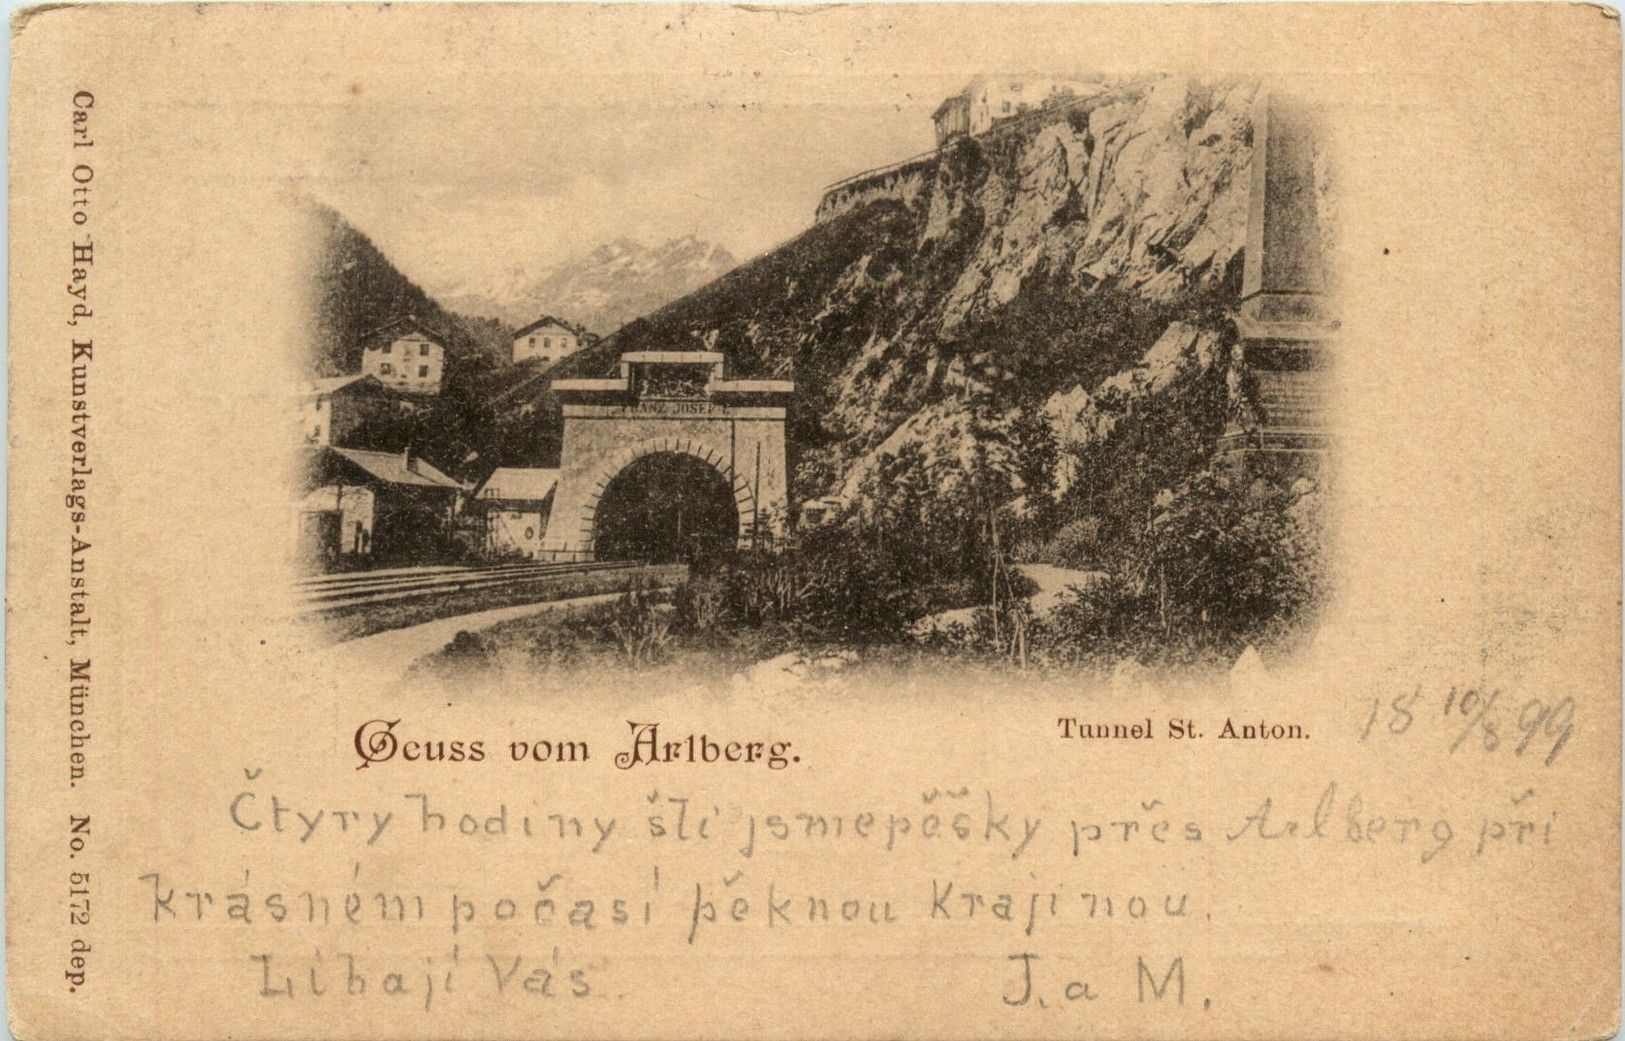 Carl Otto Hayd, Kunstverlags-Anstalt, München. No. 5172 dep.
FRANZ JOSEF
Gruss vom Arlberg.
Tunnel St. Anton.
18 10/8 99
Čtyry hodiny šli jsme pěšky přes Arlberg při
krásném počasí pěknou krajinou.
Líbají Vás
J. a M.